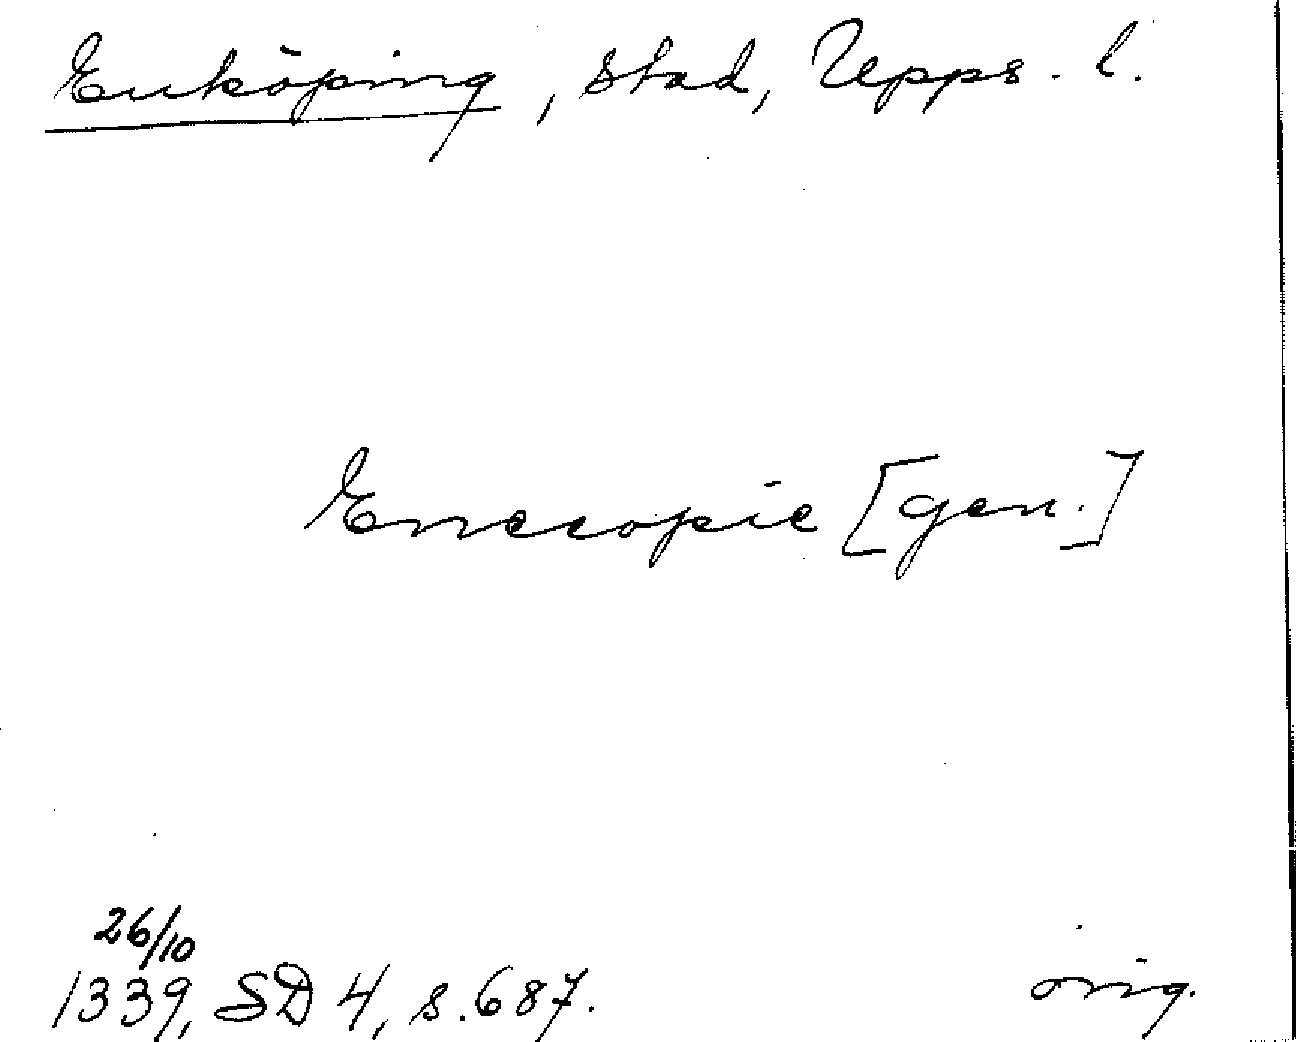 Enköping, stad, Upps. l.
Enecopie [gen.]
26/10
1339, SD 4, s. 687.
orig.